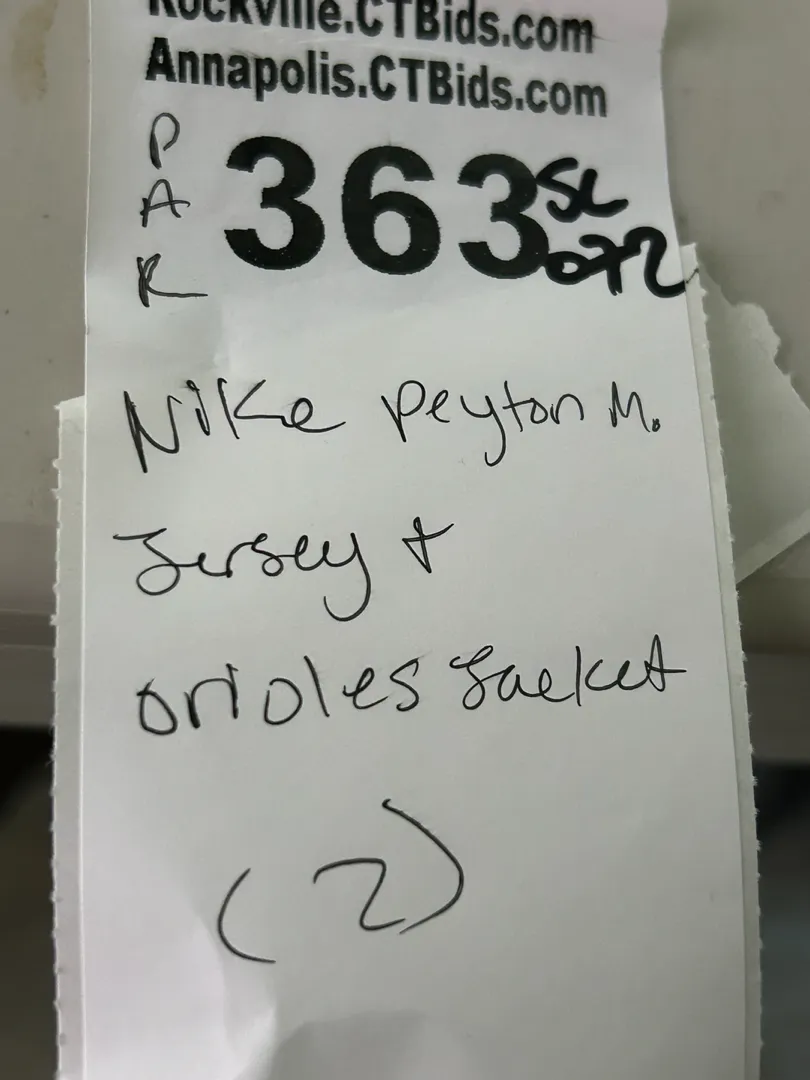 Rockville.CTBids.com
Annapolis.CTBids.com
PAR
363
SL
072
Nike Peyton M.
Jersey +
orioles Jacket
(2)